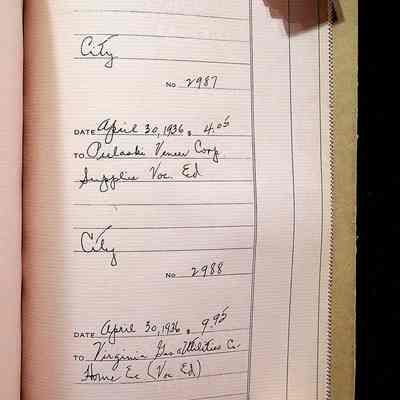 City
No 2987
DATE April 30, 1936 $ 4.05
TO Pulaski Veneer Corp.
Supplies Voc. Ed
City
No 2988
DATE April 30, 1936 $ 9.95
TO Virginia Gas Utilities Co.
Home Ec (Voc Ed)